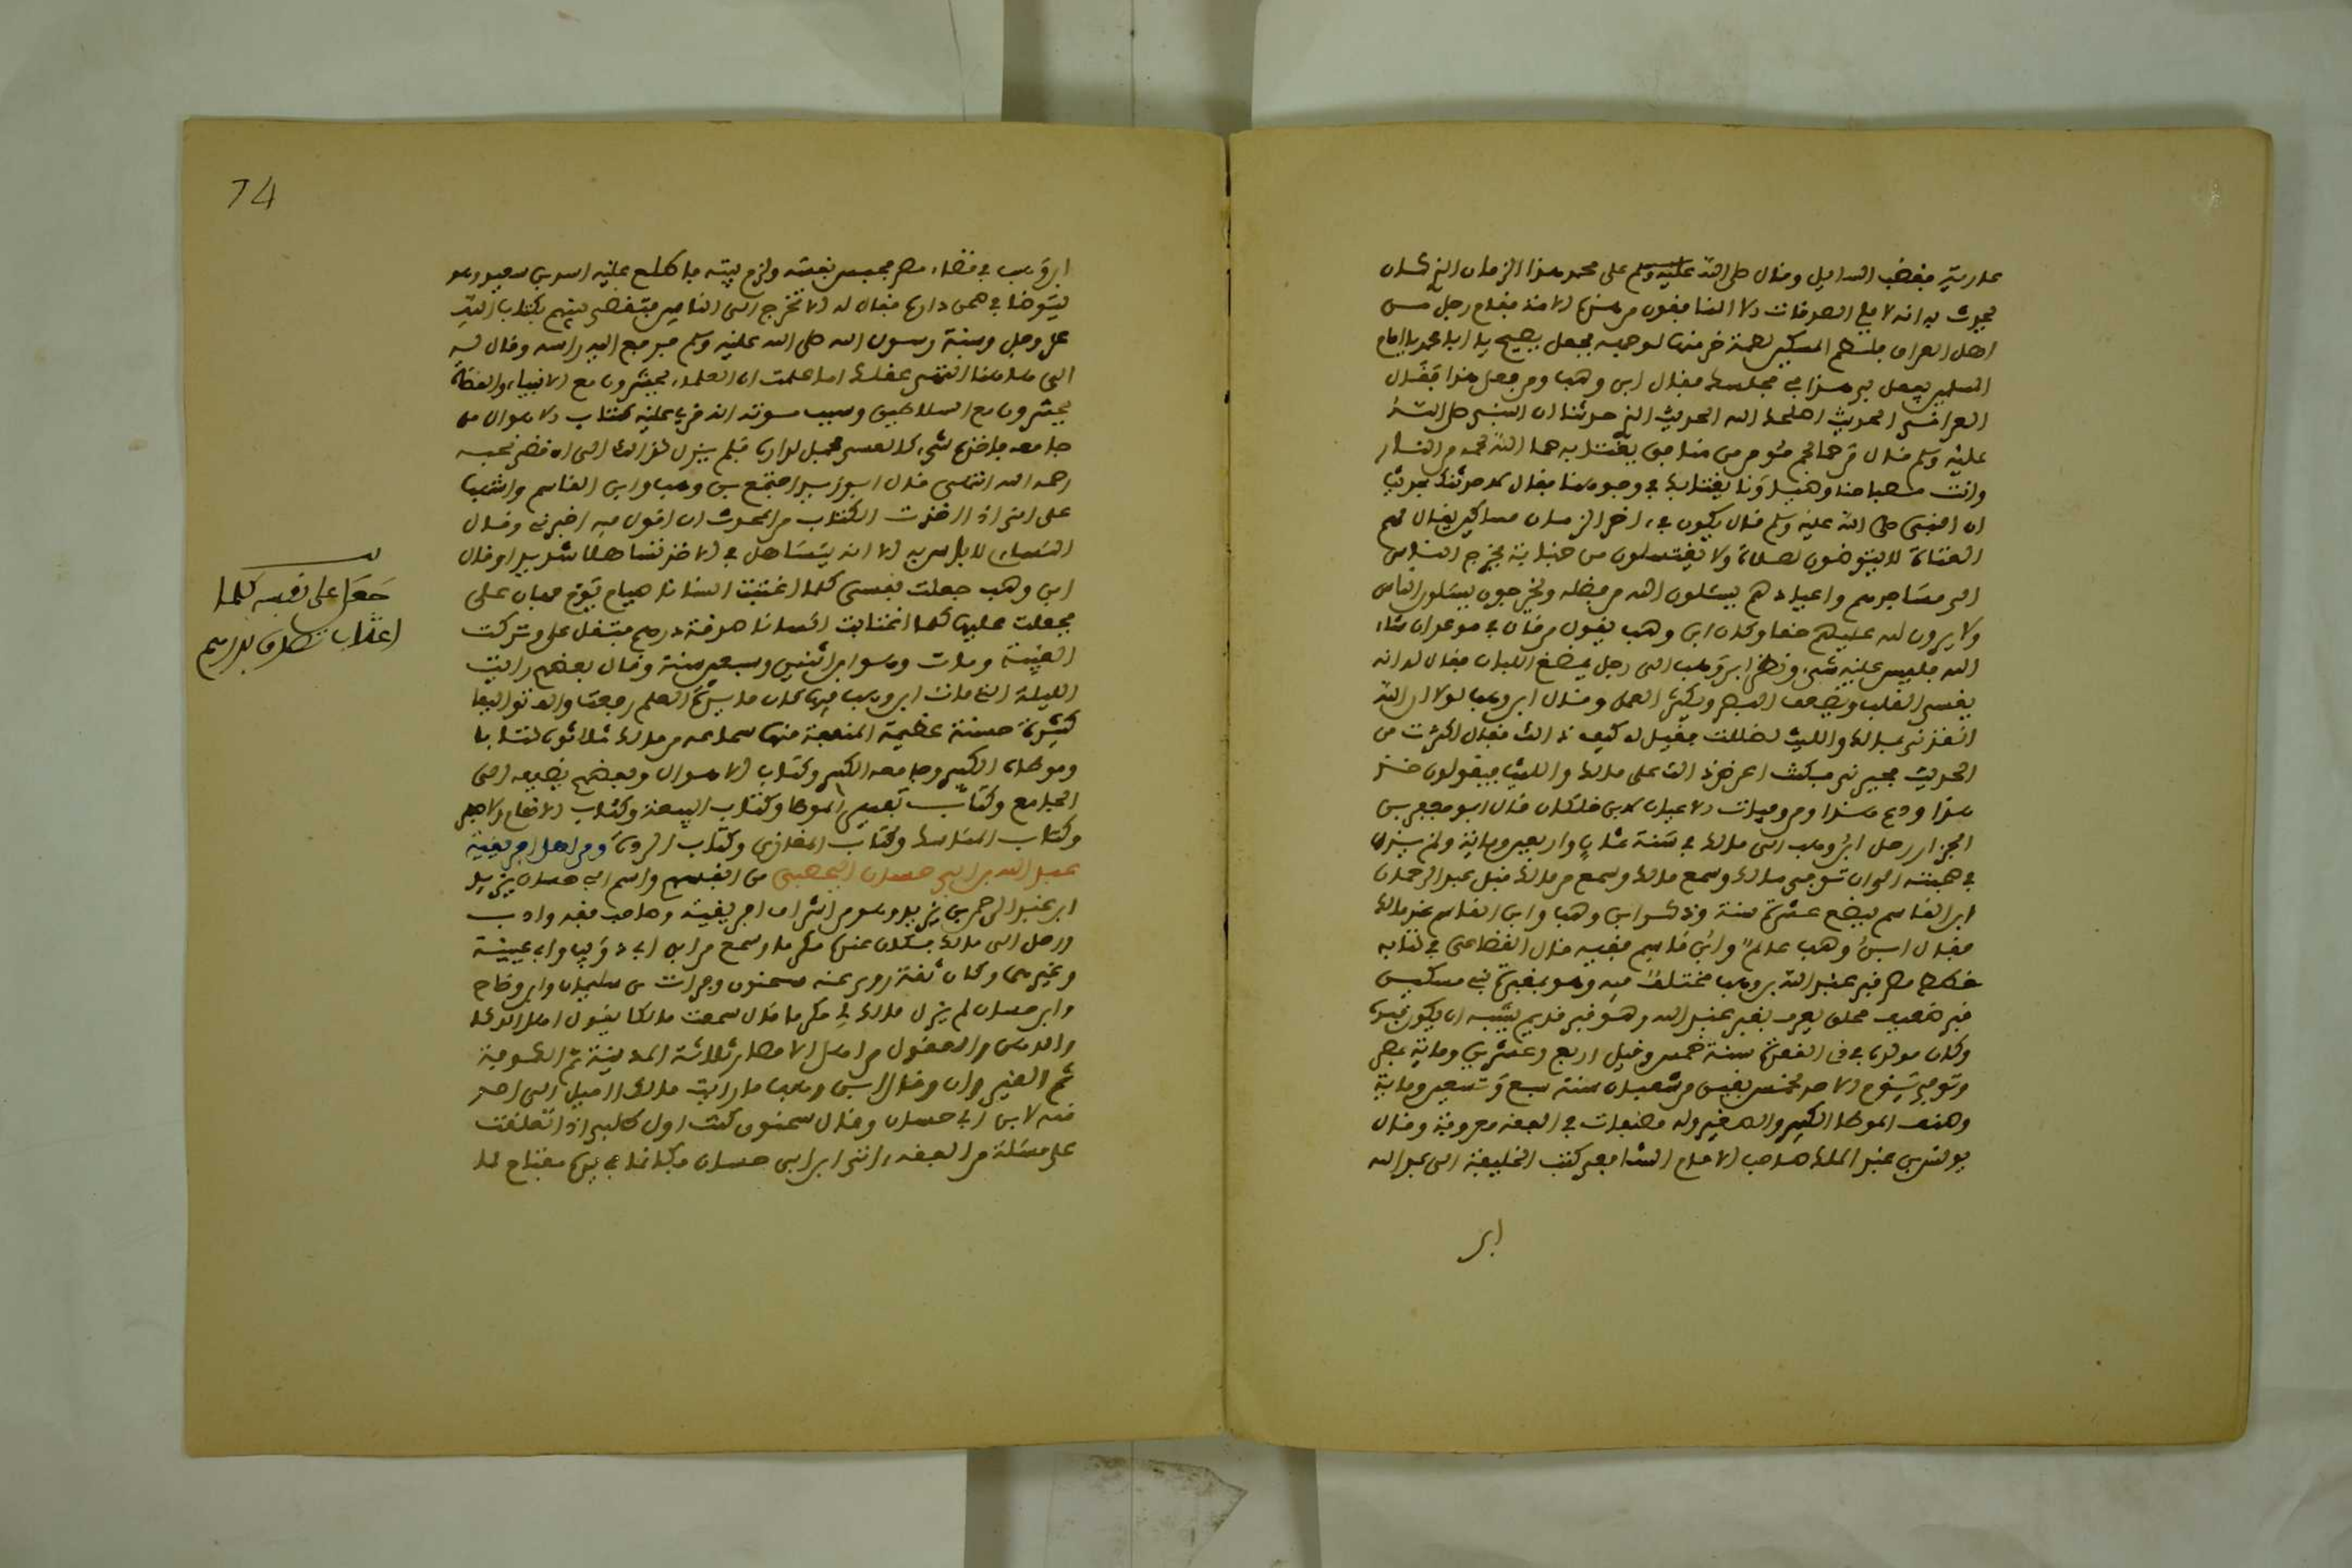 عارية فغضب السايل وقال صلى الله عليه وسلم على محمد هذا الزمان الذي كان
يحدث به انه لا يلي الصدقات الا المنافقون من هذه الامة فقام رجل من
اهل العراق فلطم المسكين لطمة خر منها لوجهه فجعل يصيح يا ابا محمد يا امام
المسلمين يفعل بي هذا في مجلسك فقال ابن وهب ومن فعل هذا فقال
العراقي الحديث اصلحك الله الحديث الذي حدثنا ان النبي صلى الله
عليه وسلم قال من حما لحم مومن من منافق يغتابه حما الله لحمه من النار
وانت مصباحنا وضياؤنا يغتابك في وجوهنا فقال لاحدثنك بحديث
ان النبي صلى الله عليه وسلم قال يكون في اخر الزمان مساكين يقال لهم
العتاة لا يتوضون لصلاة ولا يغتسلون من جنابة يخرج الناس
الى مساجدهم واعيادهم يسئلون الله من فضله ويخرجون يسئلون الناس
ولا يرون لله عليهم حقا وكان ابن وهب يقول من قال في موعد ان شاء
الله فليس عليه شيء ونظر ابن وهب الى رجل يمضغ اللبان فقال له انه
يقسي القلب ويضعف البصر ويكثر القمل وقال ابن وهب لولا ان الله
انقذني بمالك والليث لضللت فقيل له كيف ذالك فقال اكثرت من
الحديث فحيرني فكنت اعرض ذالك على مالك والليث فيقولون خذ
هذا ودع هذا ومن وفيات الاعيان لابن خلكان قال ابو جعفر بن
الجزار رحل ابن وهب الى مالك في سنة ثمان واربعين وماية ولم يزل
في صحبته الى ان توفي مالك وسمع مالك وسمع من مالك قبل عبد الرحمان
ابن القاسم ببضع عشرة سنة وذكر ابن وهب وابن القاسم عند مالك
فقال ابن وهب عالم وابن قاسم فقيه قال القضاعي في كتابه
خطط مصر قبر عبد الله بن وهب مختلف فيه وهو بمقبرة بني مسكين
قبر صغير مخلق يعرف بقبر عبد الله وهو قبر قديم يشبه ان يكون قبره
وكان مولده في ذي القعدة سنة خمس وقيل اربع وعشرين وماية بمصر
وتوفي يوم الاحد لخمس بقين من شعبان سنة سبع وتسعين وماية
وصنف الموطا الكبير والصغير وله مصنفات في الفقه معروفة وقال
يونس بن عبد الملك صاحب الامام الشافعي كتب الخليفة الى عبد الله
ابن
74
ابن وهب في قضاء مصر فحبس نفسه ولزم بيته فاطلع عليه اسد بن سعيد وهو
يتوضا في صحن داره فقال له الا تخرج الى الناس فتقضي بينهم بكتاب الله
عز وجل وسنة رسول الله صلى الله عليه وسلم فرفع اليه راسه وقال له
الى هاهنا انتهى عقلك اما علمت ان العلماء يحشرون مع الانبياء والقضاة
يحشرون مع السلاطين وسبب موته انه قرئ عليه كتاب الاهوال من
جامعه فاخذه شيء كالغشي فحمل لداره فلم يزل كذالك الى ان قضى نحبه
رحمه الله انتهى قال ابو زيد اجتمع ابن وهب وابن القاسم واشهب
على اني اذا اخذت الكتاب من المحدث ان اقول فيه اخبرني وقال
النساءي لا باس به الا انه يتساهل في الاخذ تساهلا شديدا وقال
ابن وهب جعلت نفسي كلما اغتبت انسانا صيام يوم فهان علي
فجعلت عليها كلما اغتابت انسانا صدقة درهم فثقل علي وتركت
الغيبة ومات وهو ابن اثنين وسبعين سنة وقال بعضهم رايت
الليلة التي مات ابن وهب فيها كان مايدة العلم رفعت والف تواليفا
كثيرة حسنة عظيمة المنفعة منها سماعه من مالك ثلاثون كتابا
وموطاه الكبير وجامعه الكبير وكتاب الاهوال وبعضهم يضيفه الى
الجامع وكتاب تفسير الموطا وكتاب البيعة وكتاب
وكتاب المناسك وكتاب المغازي وكتاب الردة ومن اهل افريقية
عبد الله بن ابي حسان اليحصبي من انفسهم واسم ابي حسان يزيد
ابن عبد الرحمن بن يزيد وهو من اشراف افريقية وصاحب فقه وادب
ورحل الى مالك فكان عنده مكرما وسمع من ابن ابي ذويب وابن عيينة
وغيرهما وكان ثقة روى عنه سحنون وفرات بن سليمان وابن وضاح
وابن حسان لم يزل مالك لي مكرما قال سمعت مالكا يقول اهل الذكا
والذهن والعقول من اهل الامصار ثلاثة المدينة ثم الكوفة
ثم القيروان وقال ابن وهب ما رايت مالكا اميل الى احد
منه لابن ابي حسان وقال سحنون كنت اول طالبي اذا تعلقت
على مسئلة من الفقه اتي ابن ابي حسان فكانما في يده مفتاح لما
جعل على نفسه كلما
اغتاب تصدق بدرهم